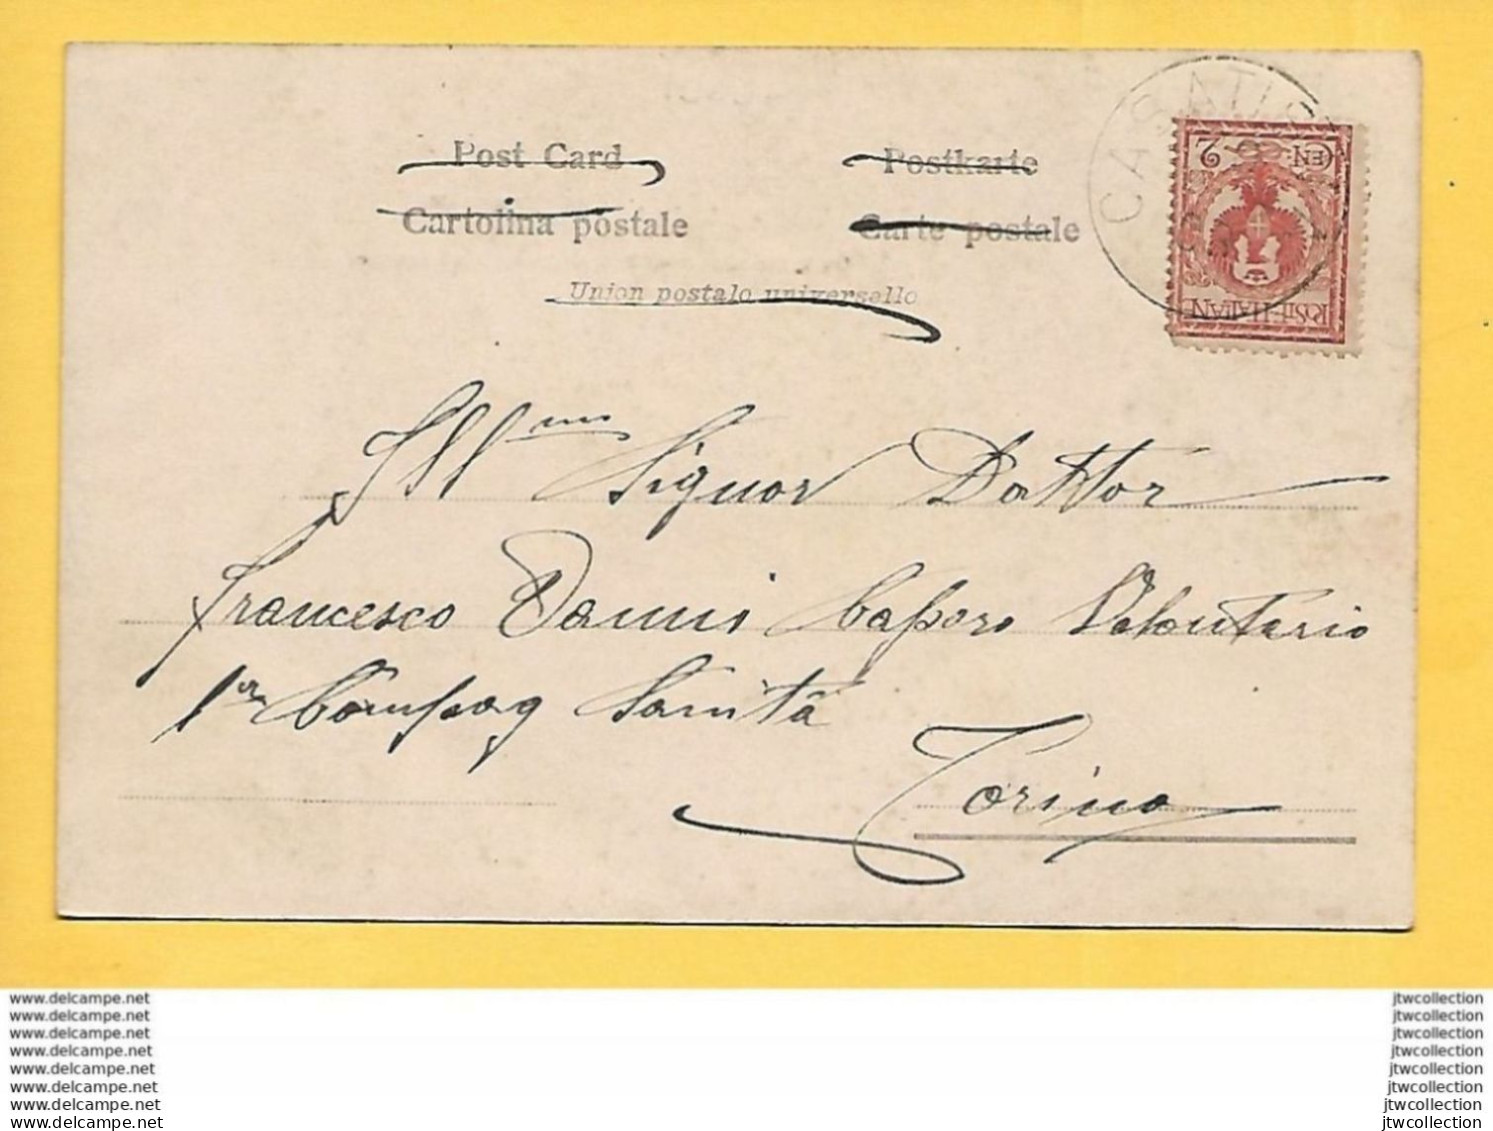 Post Card
Postkarte
Cartolina postale
Carte postale
Union postale universelle
CEN. 2
POSTE·ITALIAN
Ill.mo Signor Dottor
Francesco Dannis Caporo Volontario
1a Compag Sanità
Torino
www.delcampe.net
www.delcampe.net
www.delcampe.net
www.delcampe.net
www.delcampe.net
www.delcampe.net
www.delcampe.net
www.delcampe.net
jtwcollection
jtwcollection
jtwcollection
jtwcollection
jtwcollection
jtwcollection
jtwcollection
jtwcollection